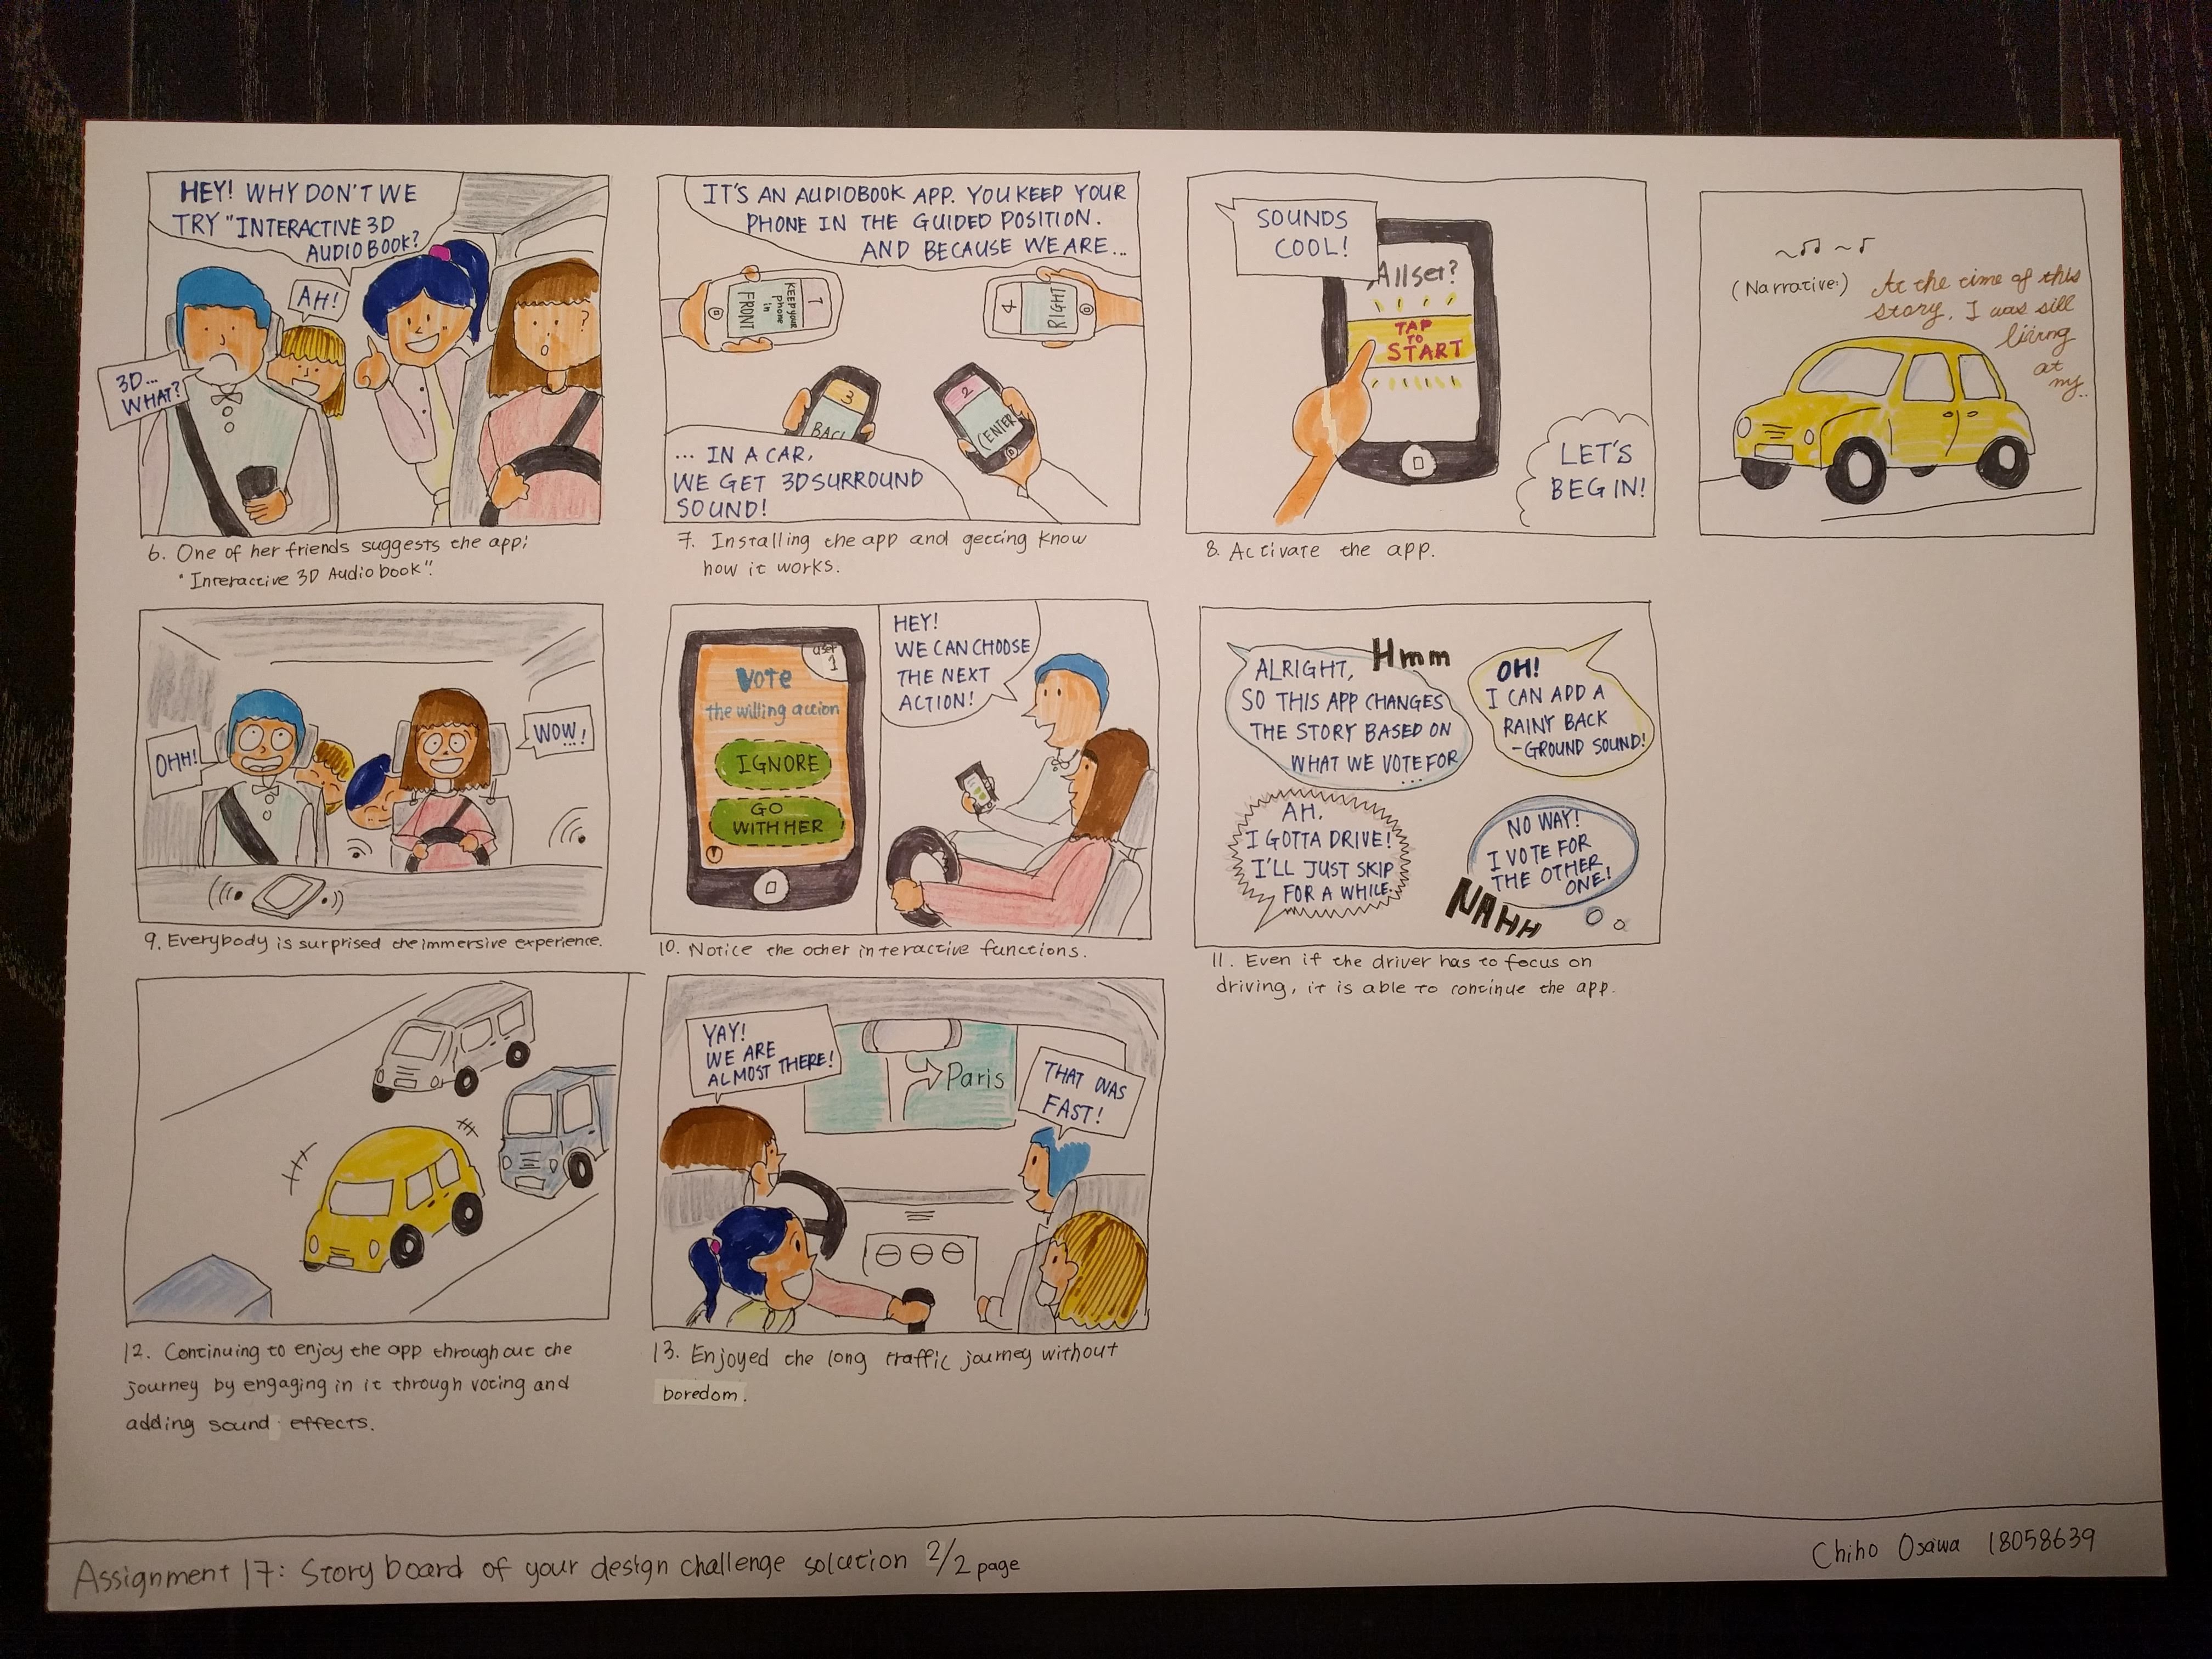 HEY! WHY DON'T WE
TRY "INTERACTIVE 3D
AUDIOBOOK?
AH!
3D...
WHAT?
?
6. One of her friends suggests the app;
"Interactive 3D Audiobook".
IT'S AN AUDIOBOOK APP. YOU KEEP YOUR
PHONE IN THE GUIDED POSITION.
AND BECAUSE WE ARE...
1
KEEP YOUR
phone
in
FRONT
4
RIGHT
3
BACK
2
CENTER
... IN A CAR,
WE GET 3D SURROUND
SOUND!
7. Installing the app and getting know
how it works.
SOUNDS
COOL!
All set?
TAP
TO
START
LET'S
BEGIN!
8. Activate the app.
(Narrative:)
At the time of this
story, I was sill
living
at
my..
OHH!
WOW..!
9. Everybody is surprised the immersive experience.
user
1
Vote
the willing action
IGNORE
GO
WITH HER
HEY!
WE CAN CHOOSE
THE NEXT
ACTION!
10. Notice the other interactive functions.
ALRIGHT,
SO THIS APP CHANGES
THE STORY BASED ON
WHAT WE VOTE FOR
...
Hmm
OH!
I CAN ADD A
RAINY BACK
-GROUND SOUND!
AH,
I GOTTA DRIVE!
I'LL JUST SKIP
FOR A WHILE.
NO WAY!
I VOTE FOR
THE OTHER
ONE!
NAHH
11. Even if the driver has to focus on
driving, it is able to continue the app.
12. Continuing to enjoy the app throughout the
journey by engaging in it through voting and
adding sound effects.
YAY!
WE ARE
ALMOST THERE!
Paris
THAT WAS
FAST!
13. Enjoyed the long traffic journey without
boredom.
Assignment 17: Story board of your design challenge solution 2/2 page
Chiho Osawa 18058639